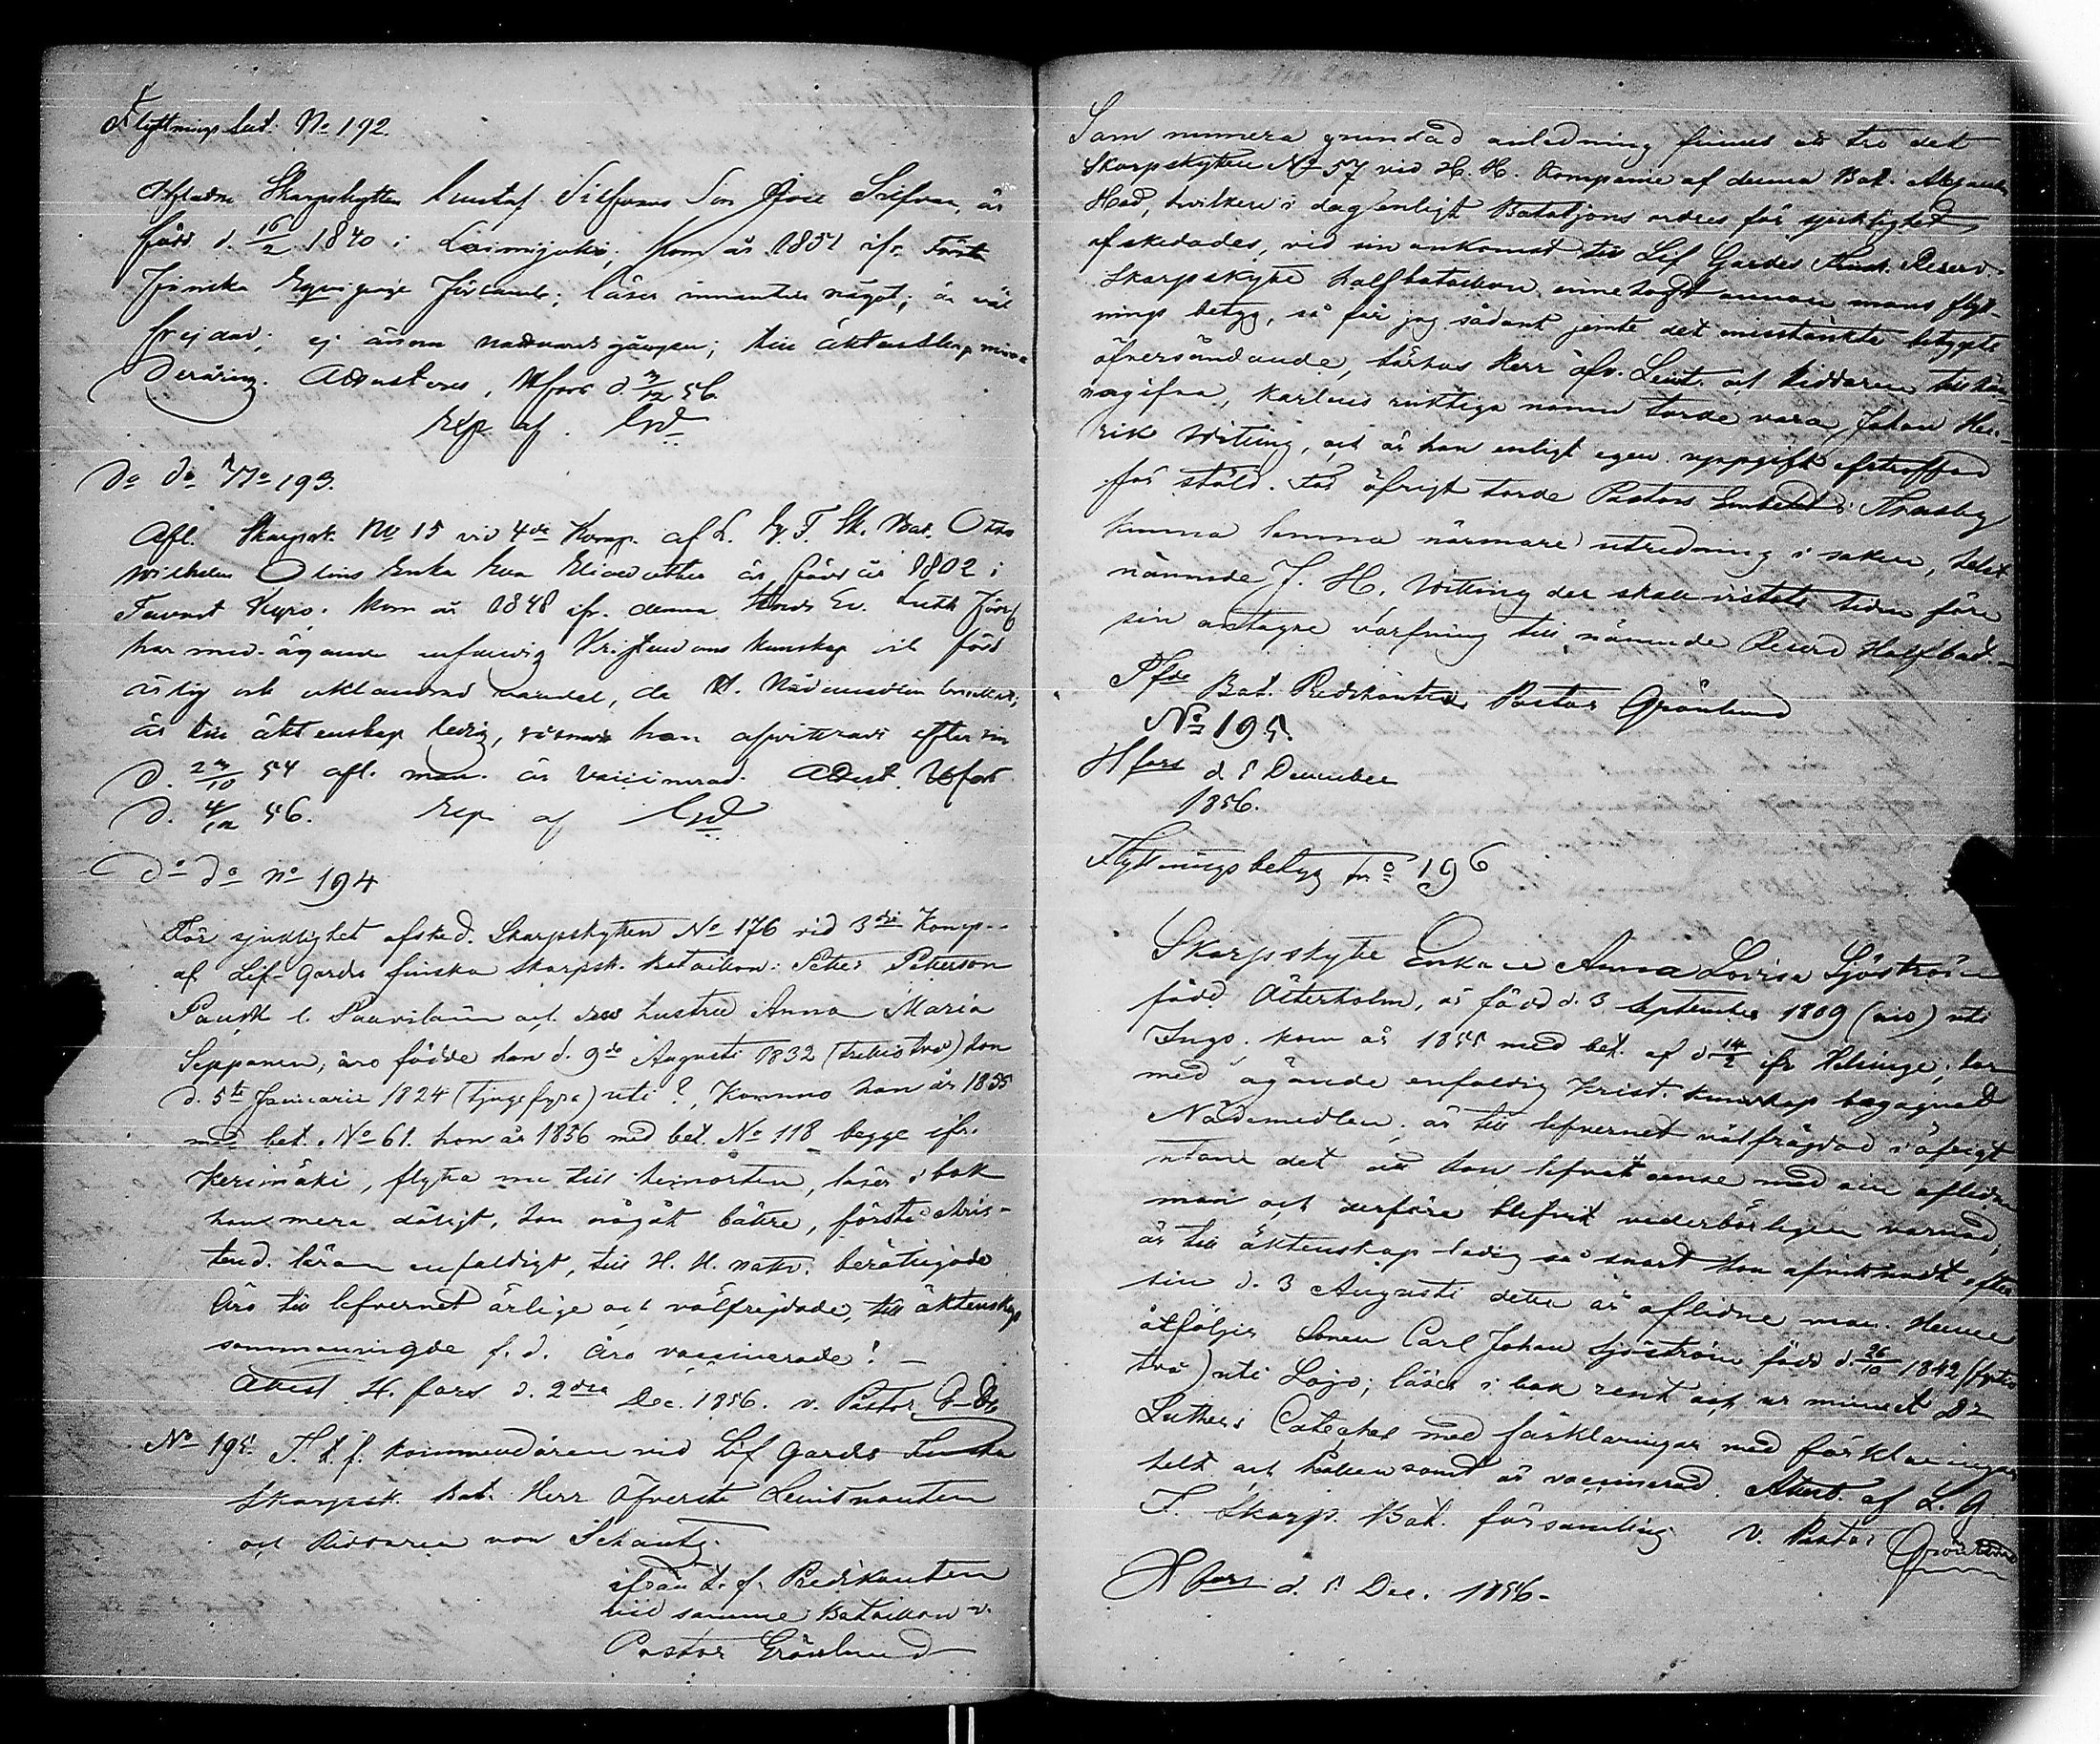 Flyttnings bet. No 192
Afledne Skarpskytten Gustaf Silfvans Son Silfvan, är
född d. 16/2 1840 i Loimijoki, kom år 1851 ifr. Första
Finska församl; läser innantill något; är väl
frejdad; ej ännu nattvardsgången; till äktenskap min-
derårig. Attesteras, Hfors d. 3/12 56.
Exp af
Do do No 193.
Afl. Skarpsk. No 15 vid 4de Komp. af L. G. F. Sk. Bat. Otto
Wilhelm Olins Enka Eva Elisabeth är född år 1802 i
Tavast Kyro. Kom år 1848 ifr. denna Ev. Luth. Förs
har med ägande enfaldig Kristendoms kunskap och förd
ärlig och oklandrad vandel, de H. Nådemedlen
är till äktenskap ledig, såsnart hon afvittrat efter sin
d. 23/10 54 afl. man. är Vaccinerad. Attest. Hfors
d. 4/12 56. Exp af
Do do No 194
För sjuklighet afsked. Skarpskytten No 176 vid 3dje Komp.
af Lif-Gardes finska skarpsk. bataillon: Petter Petterson
Pausk l. Paavilain och dess hustru Anna Maria
Sepponen, äro födde han d. 9de Augusti 1832 (trettiotvå) hon
d. 5te Januarii 1824 (tjugefyra) uti ?, Kommo han år 1855
med bet. No 61. hon år 1856 med bet. No 118 begge ifr.
Kerimäki, flytta nu till hemorten, läser i bok
han mera dåligt, hon något bättre, förstå Chris-
tend. läran enfaldigt, till H. H. nattv. berättigade
äro till lefvernet ärlige och välfrejdade, till äktenskap
sammanvigde f. d. äro vaccinerade! —
Attest H. fors d. 2dra Dec. 1856. v. Pastor
No 195. T. f. kommendören vid Lif Gardes Finska
Skarpsk. Bat. Herr Öfverste Leuitnanten
och Riddaren von Schantz.
ifrån t. f. Predikanten
vid samma Bataillon v.
Pastor Grönlund
Som numera grundad anledning finnes att tro det
Skarpskytten No 57 vid H. H. Kompanie af denna Bat. Alexander
Hed, hvilken i dag enligt Bataljons ordres för sjuklighet
afskedades, vid sin ankomst till Lif Gardes Finsk. Reserv-
Skarpskytte halfbataillon innehaft annan mans flytt-
nings betyg, så får jag sådant jemte det misstänkta betygets
öfversändande, härhos Herr öfv. Leuit. och Riddaren till kän-
nagifva, karlens riktiga namn torde vara Johan Hen-
rik Witting, och är han enligt egen uppgift
för stöld. För öfrigt torde Pastors Embetet i
kunna lemna närmare utredning i saken, helst
nämnde J. H. Witting der skall vistats tiden före
sin antagne värfning till nämnde Reserv Halfbat.
Tfde Bat. Predikanten Pastor Grönlund
No 195.
Hfors d. 5 December
1856.
Flyttningsbetyg No 196
Skarpskytte Enkan Anna Lovisa Sjöström
född Österholm, är född d. 3 September 1809 (nio) uti
Ingo. kom år 1855 med bet. af d. 14/2 ifr. Helsinge; har
med ägande enfaldig Krist. kunskap begagnat
Nådemedlen, är till lefvernet välfrägdad i öfrigt
utom det att hon lefvat oense med sin aflidne
man och derföre blefvit vederbörligen varnad,
är till äktenskap ledig så snart hon afvittrat efter
sin d. 3 Augusti detta år aflidne man. Henne
åtföljer Sonen Carl Johan Sjöström född d. 26/10 1842 (fyrtio
två) uti Lojo; läser i bok rent och ur minnet Dr
Luthers Cateches med förklaringar med förklaringar
helt och hållen samt är vaccinerad. Attest. af L. G.
F. Skarp. Bat. församling v. Pastor Grönlund
Hfors d. 5 Dec. 1856.